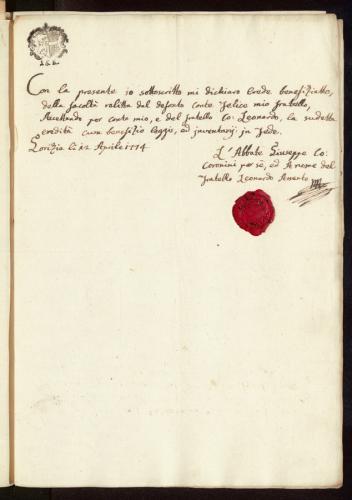 Con la presente io sottoscritto mi dichiaro Erede benefiziatto,
della facoltà relitta dal defonto conte Felice mio fratello,
Accettando per conto mio, e del fratello Co: Leonardo, la sudetta
eredità cum benefitio legis, ed inventarj: in Fede.
Gorizia li 12 Aprile 1774
L'Abbate Giuseppe Co:
Coronini per sè, ed A nome del
fratello Leonardo Assente